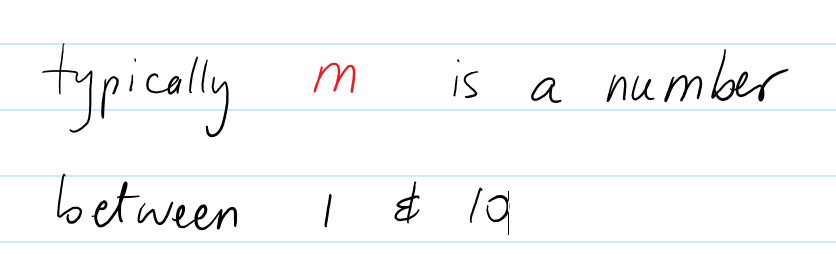 typically m is a number
between 1 & 10